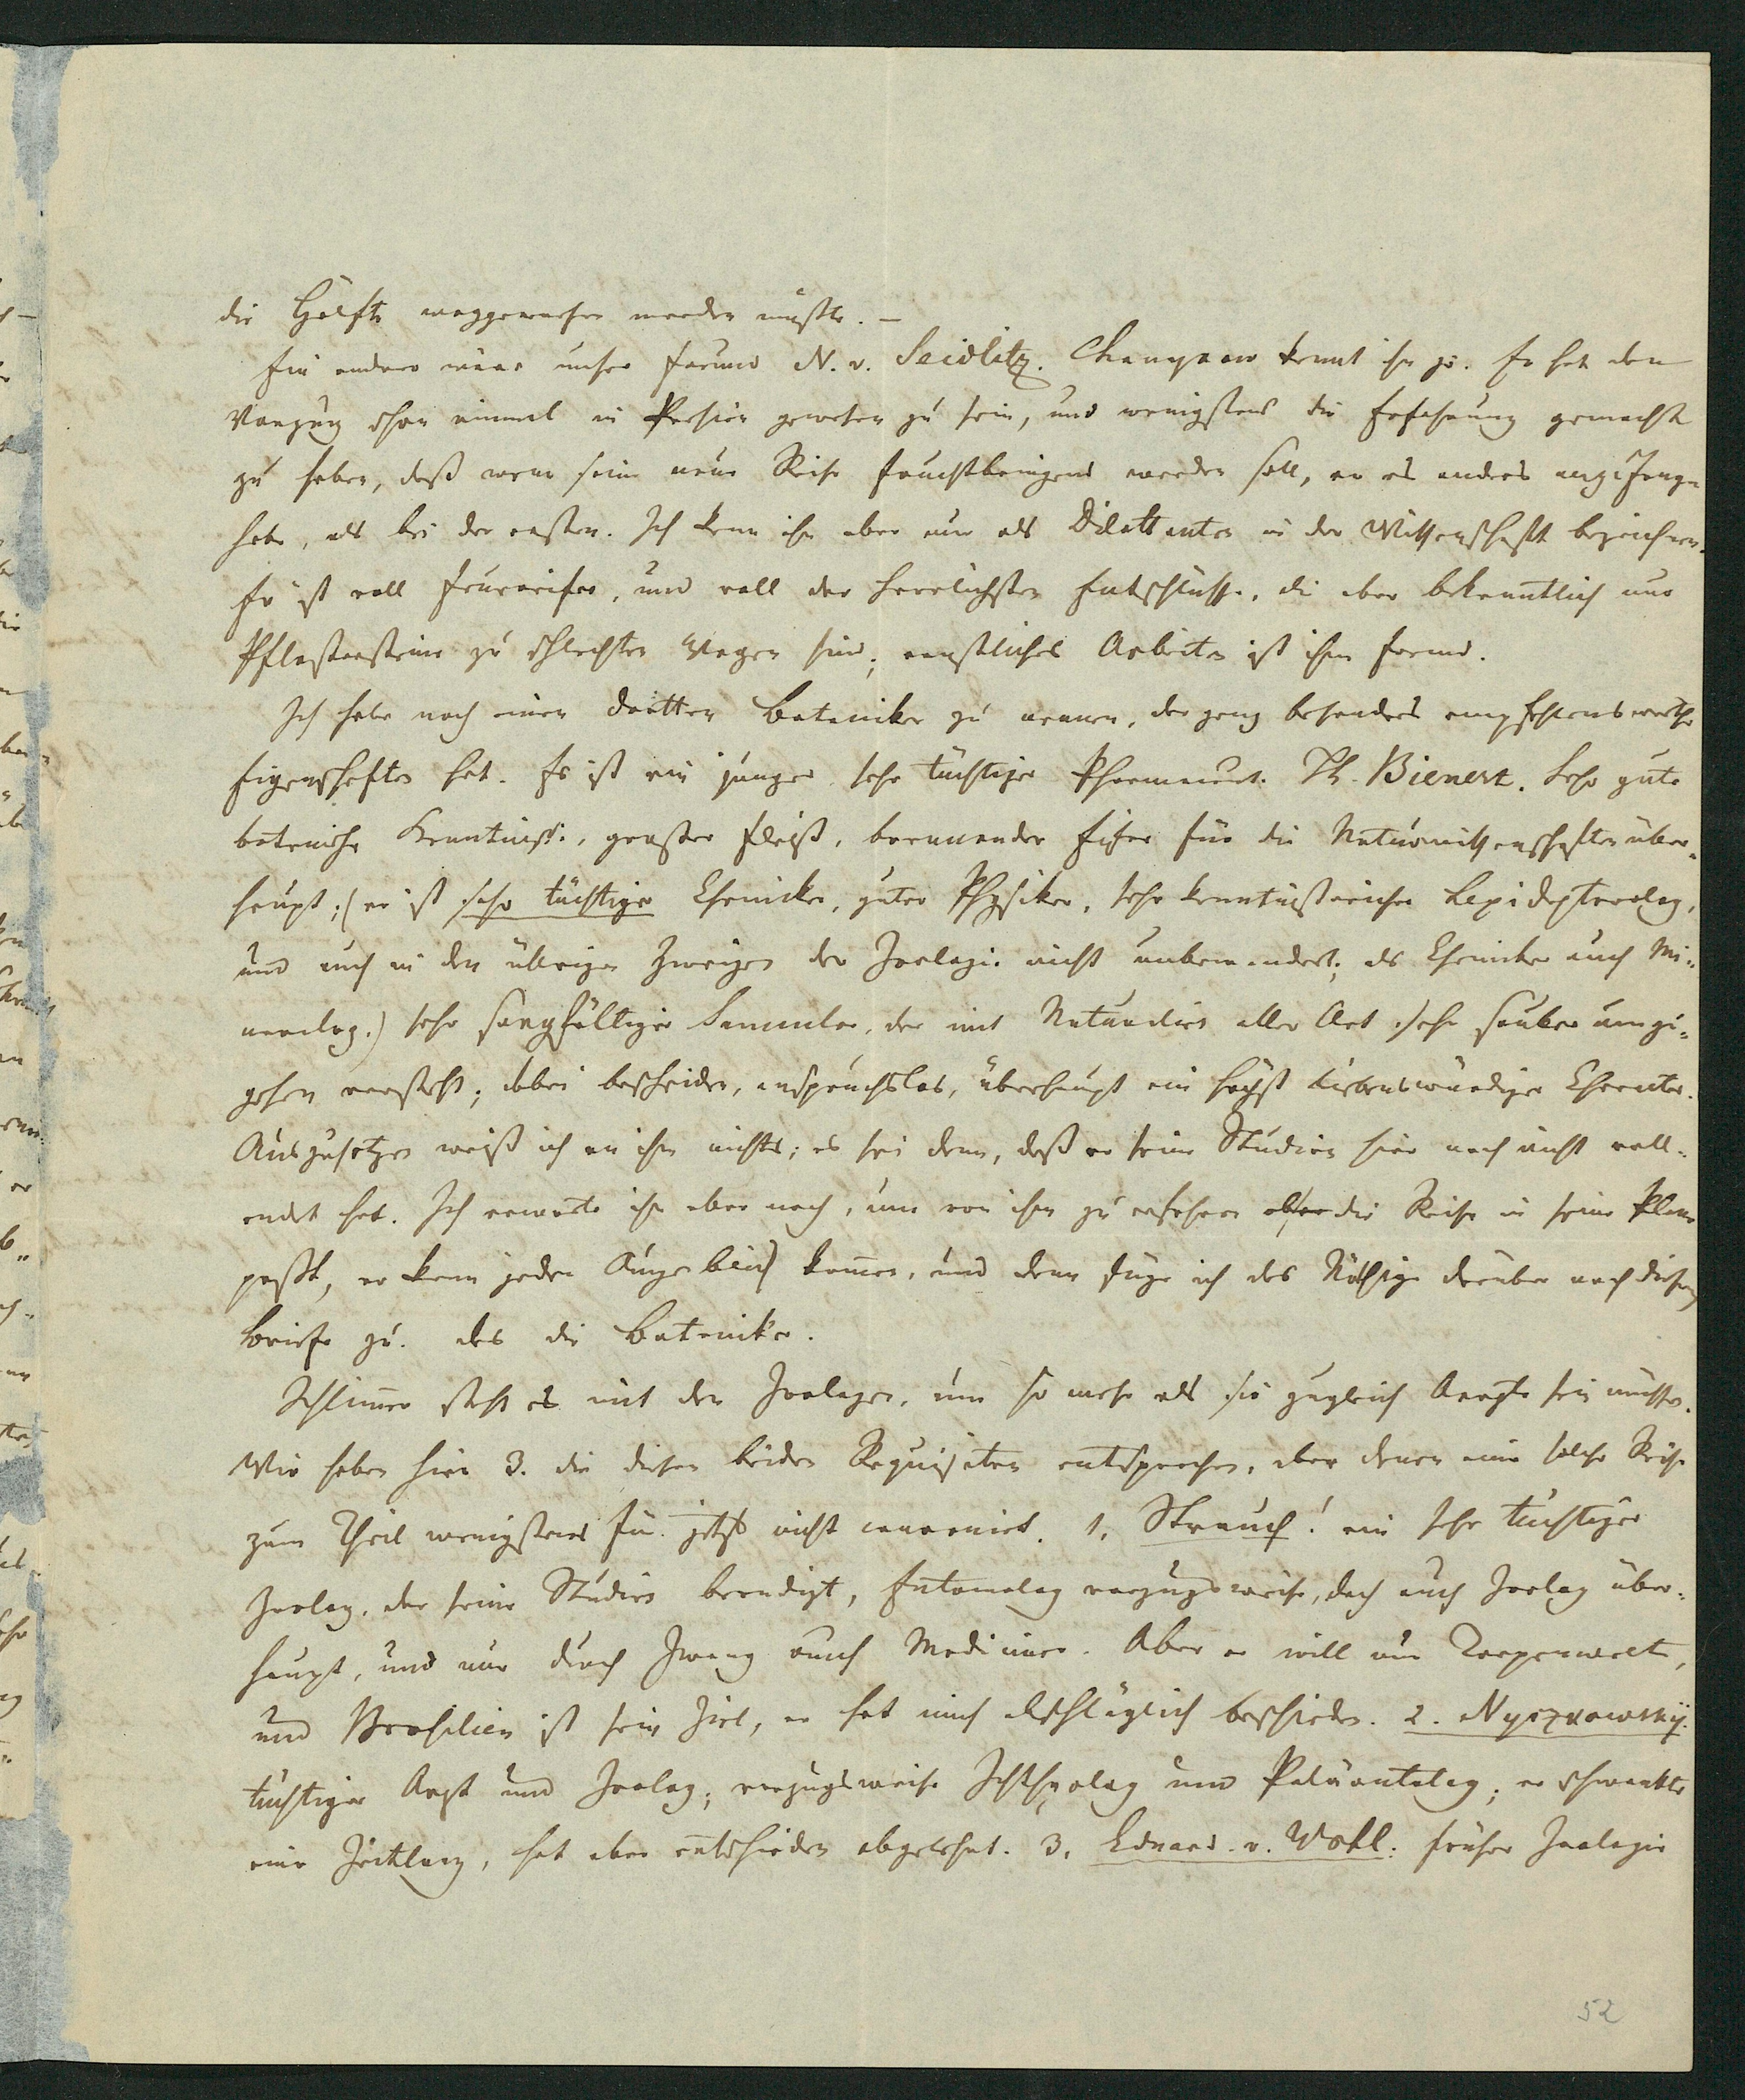 die Hälfte weggeworfen werden müßte. —
Ein andrer wäre unser Freund N. v. Seidlitz. Chanykow kennt ihn ja. Er hat den
Vorzug schon einmal in Persien gewesen zu sein, und wenigstens die Erfahrung gemacht
zu haben, daß wenn seine neue Reise fruchtbringend werden soll, er es anders anzufangen
habe, als bei der ersten. Ich kann ihn aber nur als Dilettanten in der Wissenschaft bezeichnen.
Er ist voll Feuereifer, und voll der herrlichsten Entschlüsse, die aber bekanntlich nur
Pflastersteine zu schlechten Wegen sind; ernstliches Arbeiten ist ihm fremd.
Ich habe noch einen dritten Botaniker zu nennen, der ganz besonders empfehlenswerthe
Eigenschaften hat. Es ist ein junger sehr tüchtiger Pharmaceut. Th. Bienert. Sehr gute
botanische Kenntnisse, großer Fleiß, brennender Eifer für die Naturwissenschaften über-
haupt; (er ist sehr tüchtiger Chemiker, guter Physiker, sehr kenntnißreicher Lepidopterolog,
und auch in den übrigen Zweigen der Zoologie nicht unbewandert; als Chemiker auch Mi-
neralog.) sehr sorgfältiger Sammler, der mit Naturalien aller Art sehr sauber umzu-
gehen versteht; dabei bescheiden, anspruchslos, überhaupt ein höchst liebenswürdiger Charakter.
Auszusetzen weiß ich an ihm nichts; es sei denn, daß er seine Studien hier noch nicht voll-
endet hat. Ich erwarte ihn aber noch, um von ihm zu erfahren ob die Reise in seine Pläne
paßt, er kann jeden Augenblick kommen, und dann füge ich das Nöthige darüber noch diesem
Briefe zu. das die Botaniker.
Schlimmer steht es mit den Zoologen, um so mehr als sie zugleich Aerzte sein müssen.
Wir haben hier 3. die diesen beiden Requisiten entsprechen, aber denen eine solche Reise
zum Theil wenigstens für jetzt nicht convenirt. 1. Strauch! ein sehr tüchtiger
Zoolog, der seine Studien beendigt, Entomolog vorzugsweise, doch auch Zoolog über-
haupt, und nur durch Zwang auch Mediciner. Aber er will nur Tropenwelt,
und Brasilien ist sein Ziel, er hat mich abschläglich beschieden. 2. Nyczkowsky.
tüchtiger Arzt und Zoolog; vorzugsweise Ichthyolog und Paläontolog; er schwankte
eine Zeitlang, hat aber entschieden abgelehnt. 3. Eduard v. Wahl. früher Zoologie
52